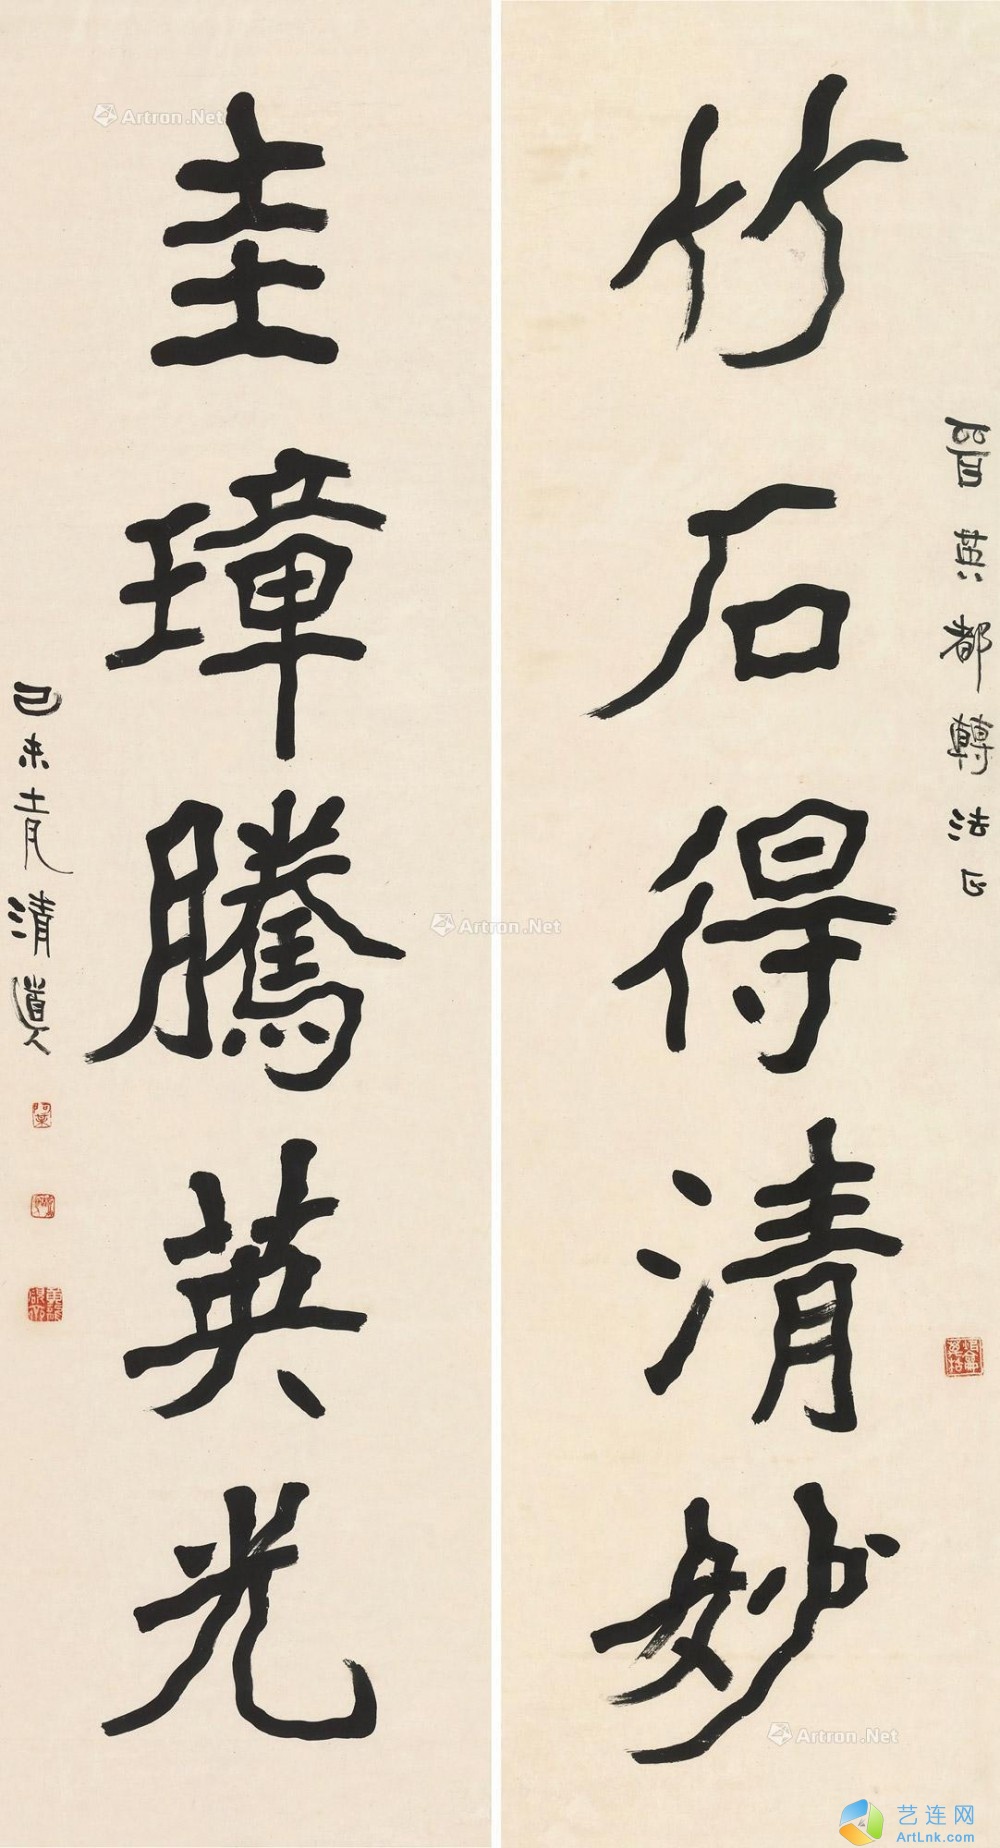 英都轉法正
竹石得清妙
圭璋騰英光
己未十一月清道人
Artron.Net
Artron.Net
Artron.Net
艺连网
ArtLnk.com